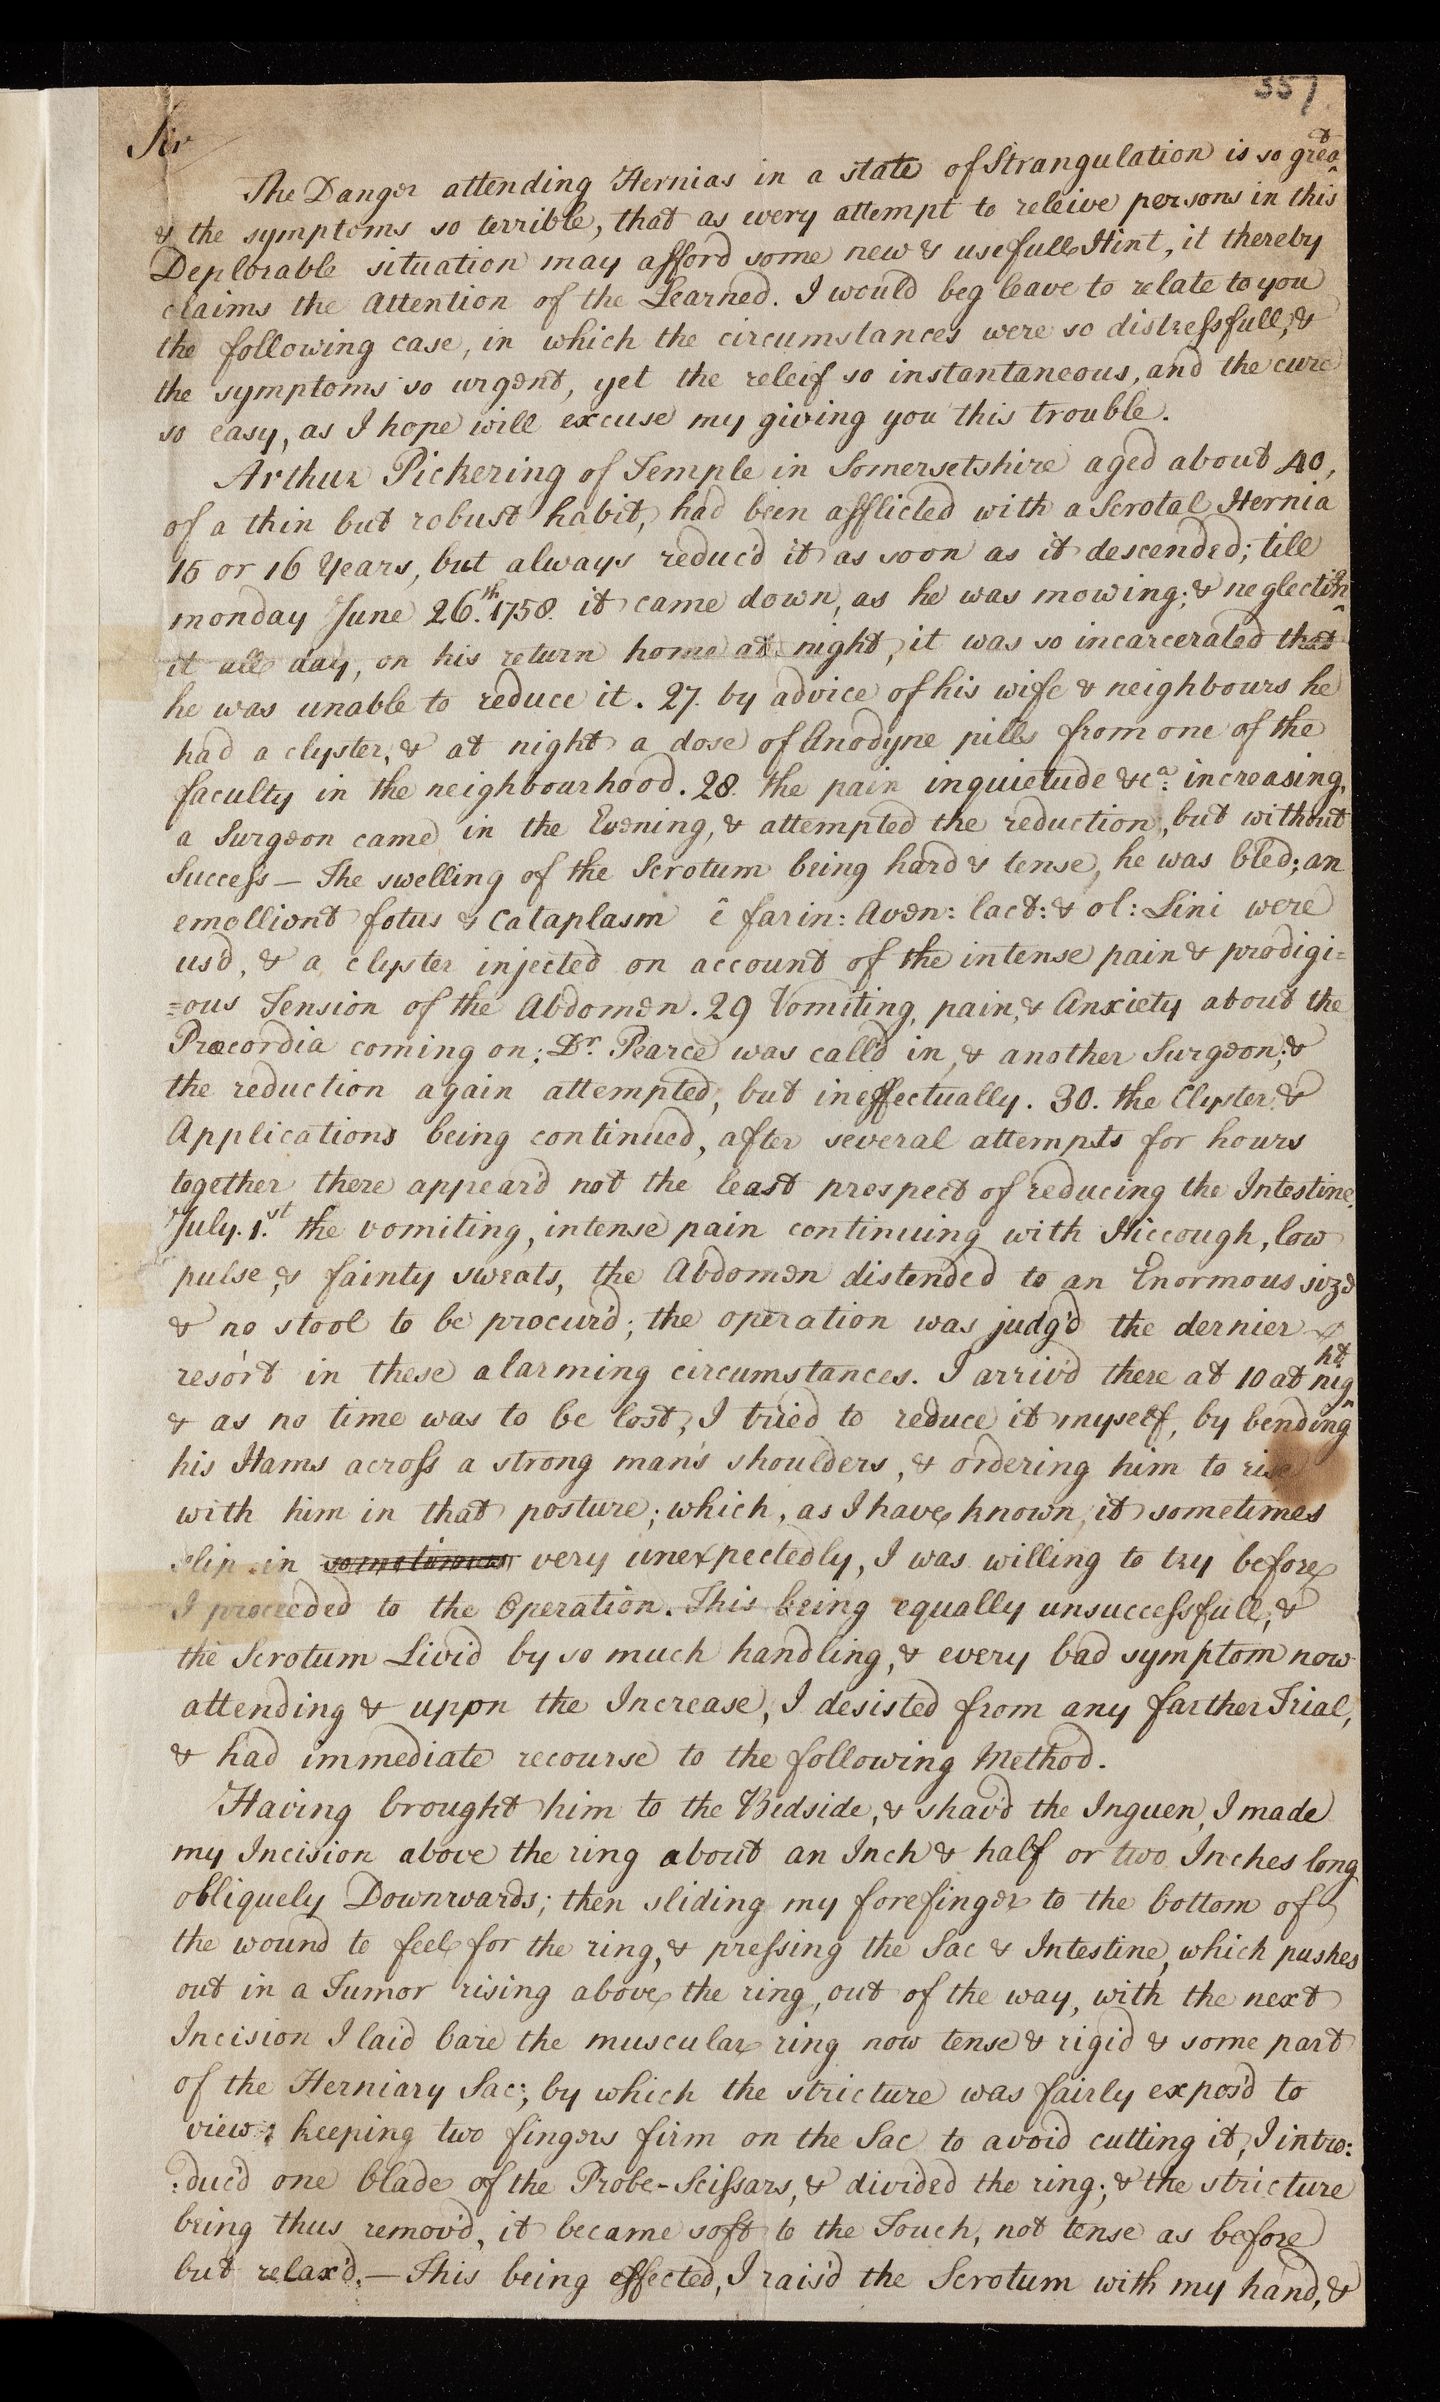 357
Sir
The Danger attending Hernias in a state of Strangulation is so great
& the symptoms so terrible, that as every attempt to releive persons in this
Deplorable situation may afford some new & usefull Hint, it thereby
claims the Attention of the Learned. I would beg leave to relate to you
the following case, in which the circumstances were so distressfull, &
the symptoms so urgent, yet the releif so instantaneous, and the cure
so easy, as I hope will excuse my giving you this trouble.
Arthur Pickering of Temple in Somersetshire aged about 40,
of a thin but robust habit, had been afflicted with a Scrotal Hernia
15 or 16 Years, but always reduc'd it as soon as it descended; till
monday June 26.th 1758. it came down, as he was mowing; & neglecting
it all day, on his return home at night, it was so incarcerated that
he was unable to reduce it. 27. by advice of his wife & neighbours he
had a clyster, & at night a dose of Anodyne pills from one of the
faculty in the neighbourhood. 28. the pain inquietude &c.a increasing,
a Surgeon came in the Evening, & attempted the reduction, but without
Success — The swelling of the Scrotum being hard & tense, he was bled; an
emollient fotus & Cataplasm ĉ farin: Aven: lact: & ol: Lini were
us'd, & a clyster injected on account of the intense pain & prodigi=
=ous Tension of the Abdomen. 29 Vomiting, pain, & Anxiety about the
Præcordia coming on; Dr. Pearce was call'd in, & another Surgeon; &
the reduction again attempted, but ineffectually. 30. the Clyster &
Applications being continued, after several attempts for hours
together there appear'd not the least prospect of reducing the Intestine.
July. 1.st the vomiting, intense pain continuing with Hiccough, low
pulse, & fainty sweats, the Abdomen distended to an Enormous size
& no stool to be procur'd; the operation was judg'd the dernier
resórt in these alarming circumstances. I arriv'd there at 10 at night
& as no time was to be lost, I tried to reduce it myself, by bending
his Hams across a strong man's shoulders, & ordering him to rise
with him in that posture; which, as I have known it sometimes
slip in sometimes very unexpectedly, I was willing to try before
I proceeded to the Operation. This being equally unsuccessfull, &
the Scrotum Livid by so much handling, & every bad symptom now
attending & uppn the Increase, I desisted from any farther Trial,
& had immediate recourse to the following Method.
Having brought him to the Bedside, & shav'd the Inguen, I made
my Incision above the ring about an Inch & half or two Inches long
obliquely Downwards; then sliding my forefinger to the bottom of
the wound to feel for the ring, & pressing the Sac & Intestine, which pushes
out in a Tumor rising above the ring, out of the way, with the next
Incision I laid bare the muscular ring now tense & rigid & some part
of the Herniary Sac; by which the stricture was fairly expos'd to
view; keeping two fingers firm on the Sac to avoid cutting it, I intro:
:duc'd one blade of the Probe-Scissars, & divided the ring; & the stricture
being thus remov'd, it became soft to the Touch, not tense as before
but relax'd. — This being effected, I rais'd the Scrotum with my hand, &